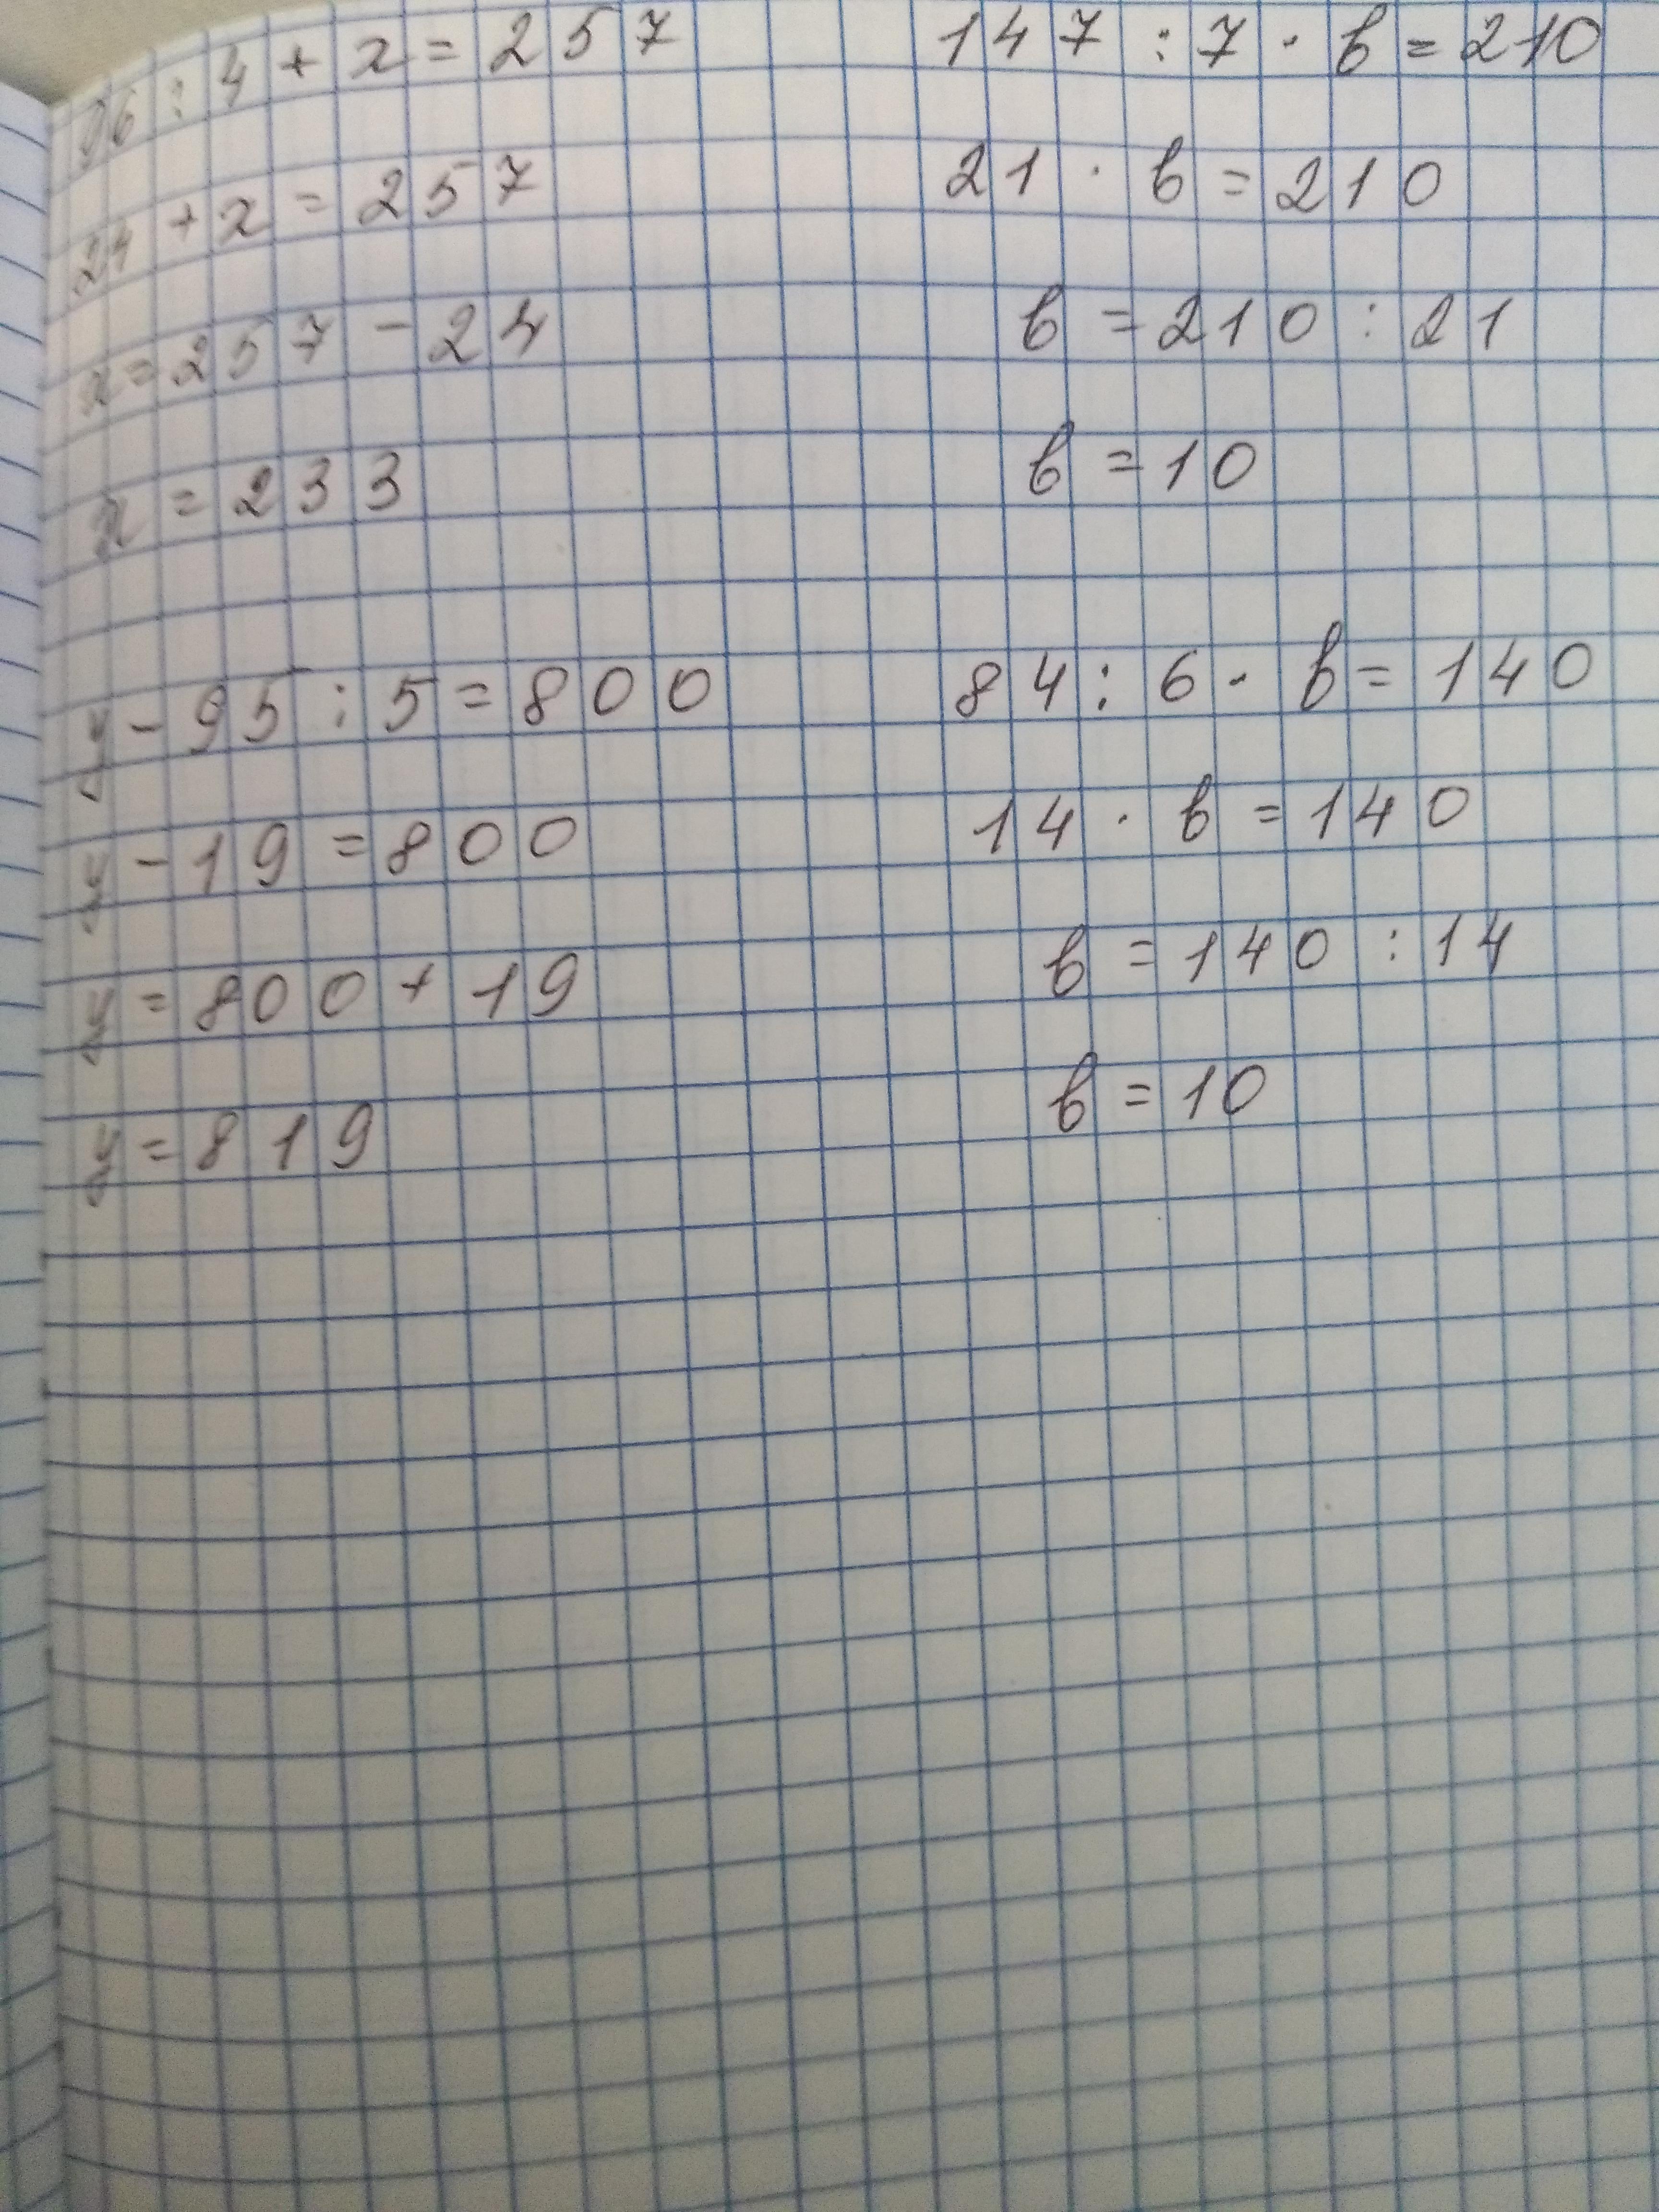 96 : 4 + x = 257
24 + x = 257
x = 257 - 24
x = 233
y - 95 : 5 = 800
y - 19 = 800
y = 800 + 19
y = 819
147 : 7 · b = 210
21 · b = 210
b = 210 : 21
b = 10
84 : 6 · b = 140
14 · b = 140
b = 140 : 14
b = 10